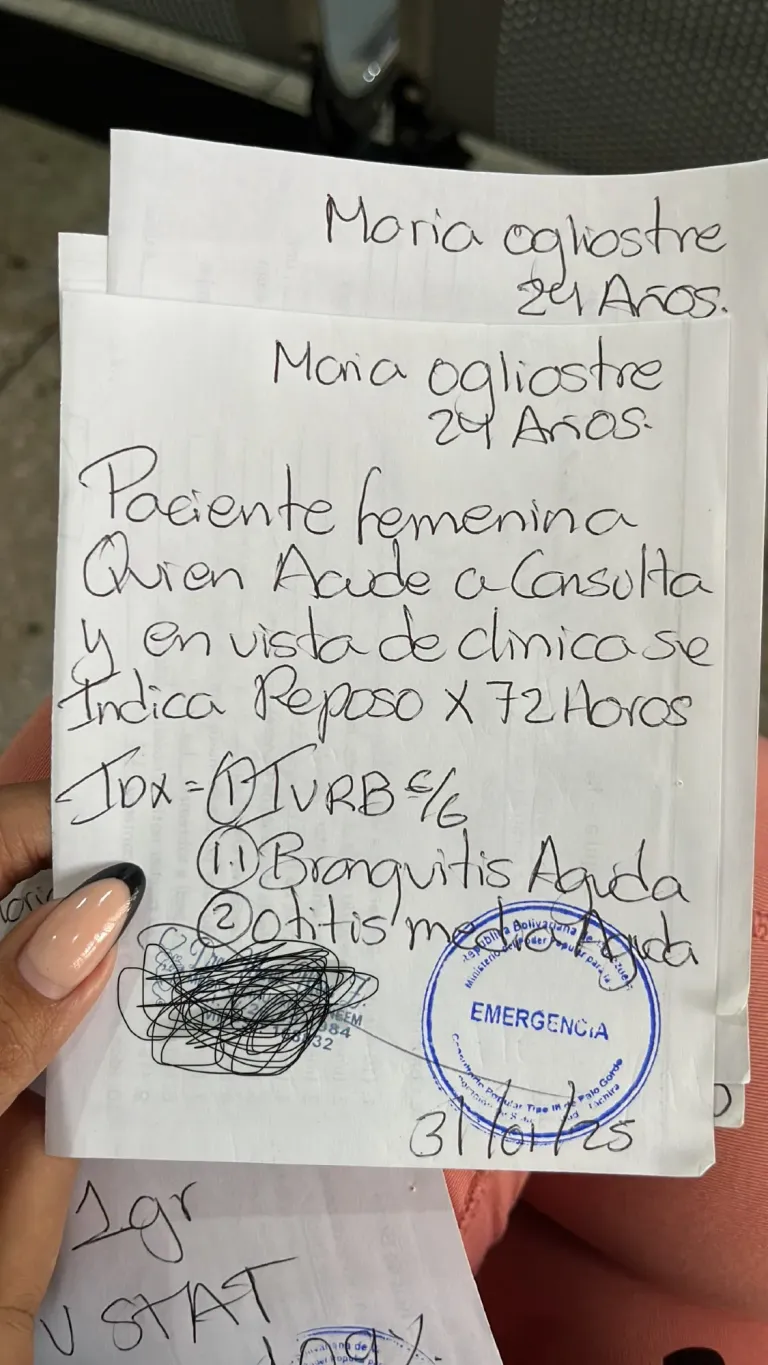 Maria ogliostre
24 Años.
Maria ogliostre
24 Años.
Paciente femenina
Quien Acude a Consulta
y en vista de clinica se
Indica Reposo X 72 Horas
IDX = ① IVRB c/G
1.1 Bronquitis Aguda
② Otitis media Aguda
República Bolivariana de
Ministerio del Poder Popular para la
EMERGENCIA
Consultorio Popular Tipo III de Palo Gordo
Táchira
31/01/25
1gr
STAT